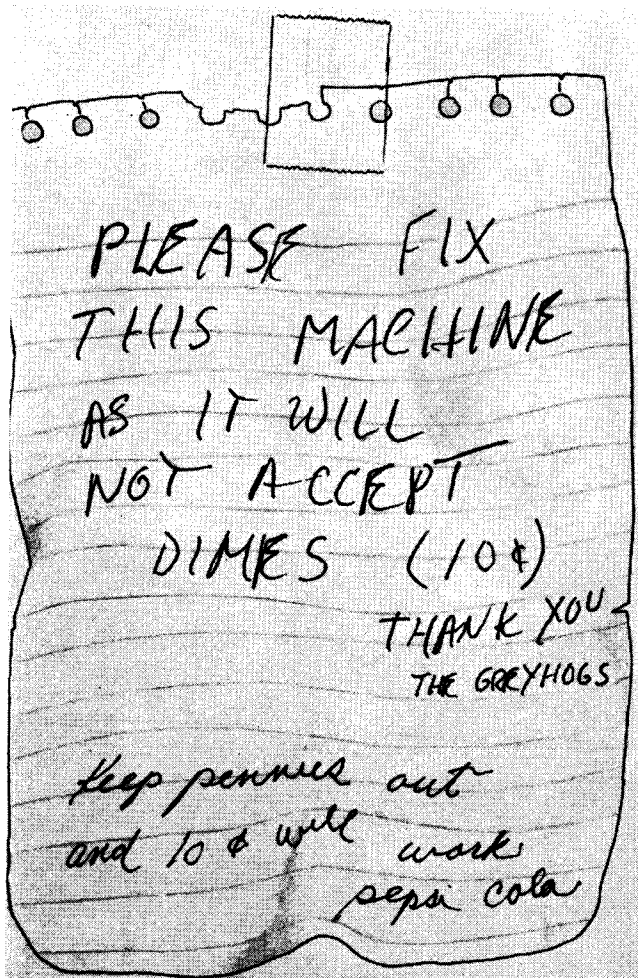 PLEASE FIX
THIS MACHINE
AS IT WILL
NOT ACCEPT
DIMES (10¢)
THANK YOU
THE GREYHOGS
Keep pennies out
and 10¢ will work
pepsi cola